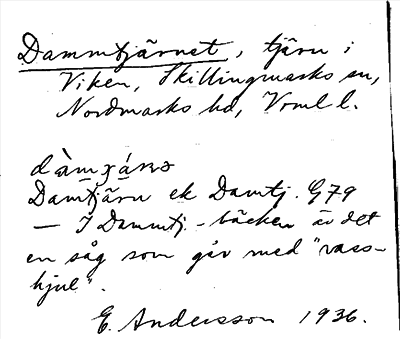 Dammtjärnet, tjärn i
Viken, Skillingmarks sn,
Nordmarks hd, Vrml l.
Damtjärn ek Damtj. G79
— I Dammtj-bäcken är det
en såg som går med "vass-
hjul".
E. Andersson 1936.